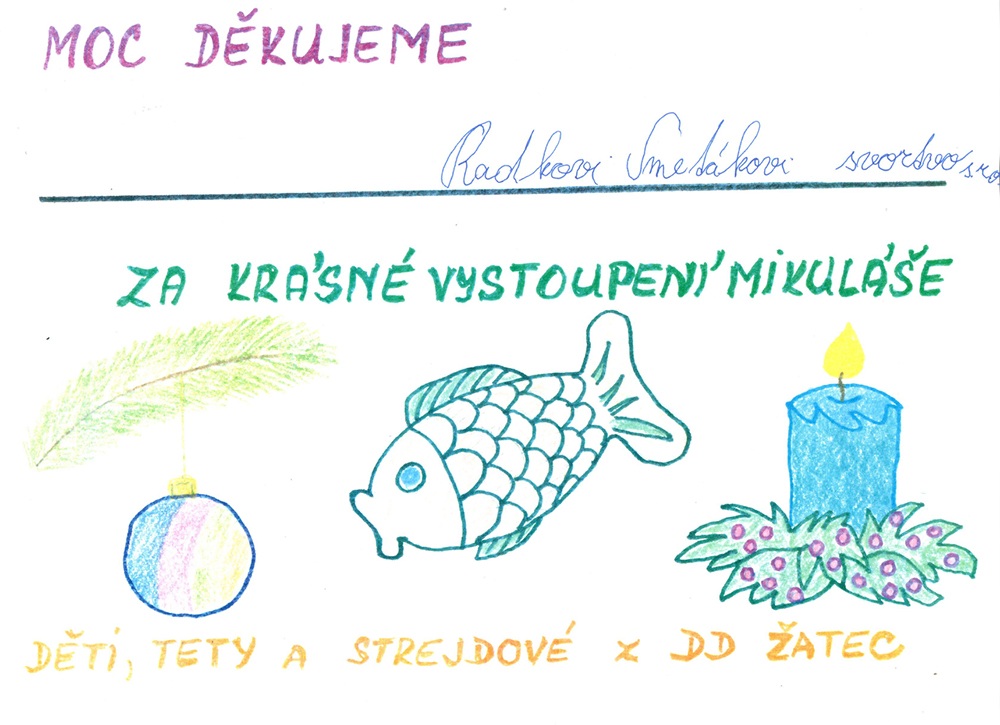 MOC DĚKUJEME
Radkovi Smetákovi
ZA KRÁSNÉ VYSTOUPENÍ MIKULÁŠE
DĚTI, TETY A STREJDOVÉ z DD ŽATEC